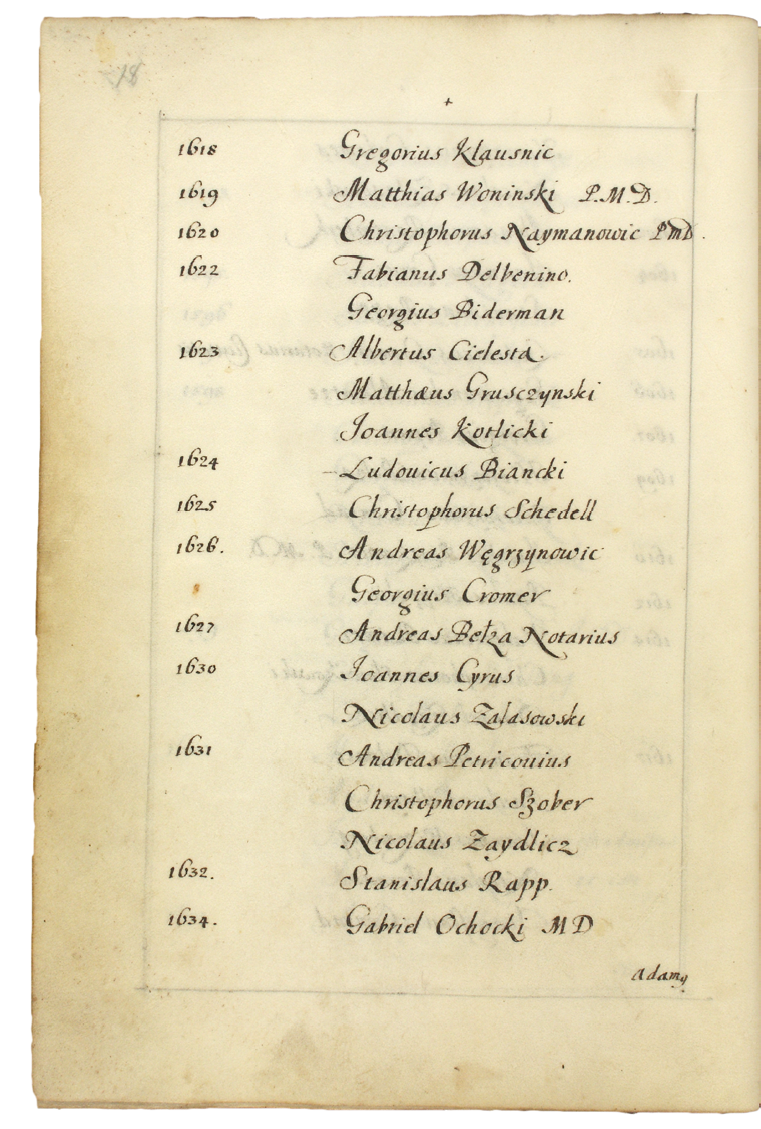 18
+
1618 Gregorius Klausnic
1619 Matthias Woninski P.M.D.
1620 Christophorus Naymanowic PmD.
1622 Fabianus Delbenino.
Georgius Biderman
1623 Albertus Cielesta.
Matthæus Grusczynski
Joannes Kotlicki
1624 Ludouicus Biancki
1625 Christophorus Schedell
1626. Andreas Węgrzynowic
Georgius Cromer
1627 Andreas Bełza Notarius
1630 Joannes Cyrus
Nicolaus Zalasowski
1631 Andreas Petricouius
Christophorus Szober
Nicolaus Zaydlicz
1632. Stanislaus Rapp.
1634. Gabriel Ochocki MD
Adamꝯ